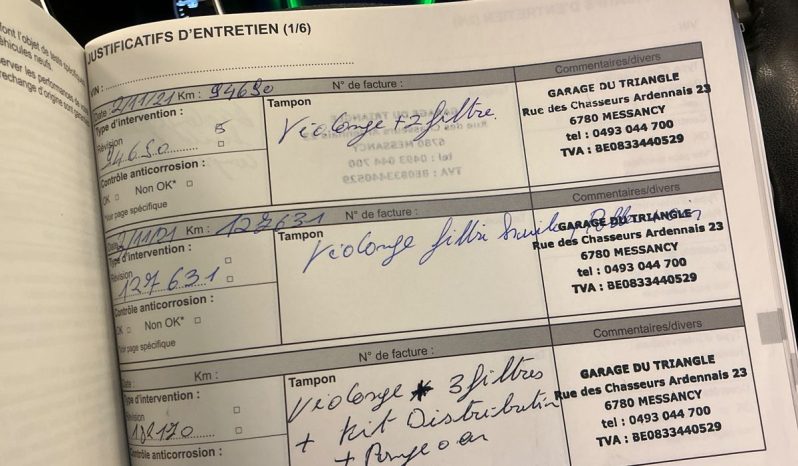 font l'objet de tests spécifiques
véhicules neufs.
rechange d'origine sont garanties
JUSTIFICATIFS D'ENTRETIEN (1/6)
VIN :
Date : 2/11/21 Km : 94650 N° de facture : Commentaires/divers
Type d'intervention :
Révision
94650
Contrôle anticorrosion :
OK Non OK*
*Voir page spécifique
Tampon
Vidange + 2 filtre.
GARAGE DU TRIANGLE
Rue des Chasseurs Ardennais 23
6780 MESSANCY
tel : 0493 044 700
TVA : BE0833440529
Km : 127631 N° de facture : Commentaires/divers
Type d'intervention :
Révision
127631
Contrôle anticorrosion :
OK Non OK*
*Voir page spécifique
Tampon
Vidange filtre
GARAGE DU TRIANGLE
Rue des Chasseurs Ardennais 23
6780 MESSANCY
tel : 0493 044 700
TVA : BE0833440529
Date : Km : N° de facture : Commentaires/divers
Type d'intervention :
Révision
182170
Contrôle anticorrosion :
Tampon
Vidange * 3 filtres
+ Kit Distribution
GARAGE DU TRIANGLE
Rue des Chasseurs Ardennais 23
6780 MESSANCY
tel : 0493 044 700
TVA : BE0833440529